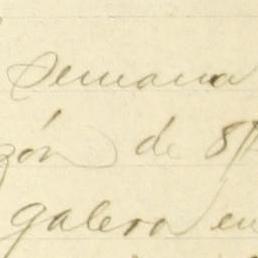 Semana
zón de 8
galera en